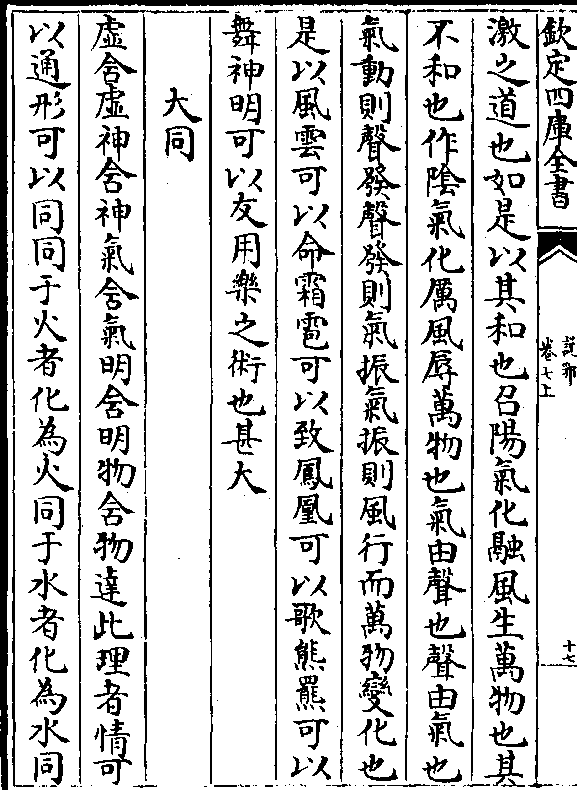 欽定四庫全書
說郛
卷七上
十七
激之道也如是以其和也召陽氣化融風生萬物也其
不和也作陰氣化厲風辱萬物也氣由聲也聲由氣也
氣動則聲發聲發則氣振氣振則風行而萬物變化也
是以風雲可以命霜雹可以致鳳凰可以歌熊羆可以
舞神明可以友用樂之術也甚大
大同
虛含虛神含神氣含氣明含明物含物達此理者情可
以通形可以同同于火者化為火同于水者化為水同